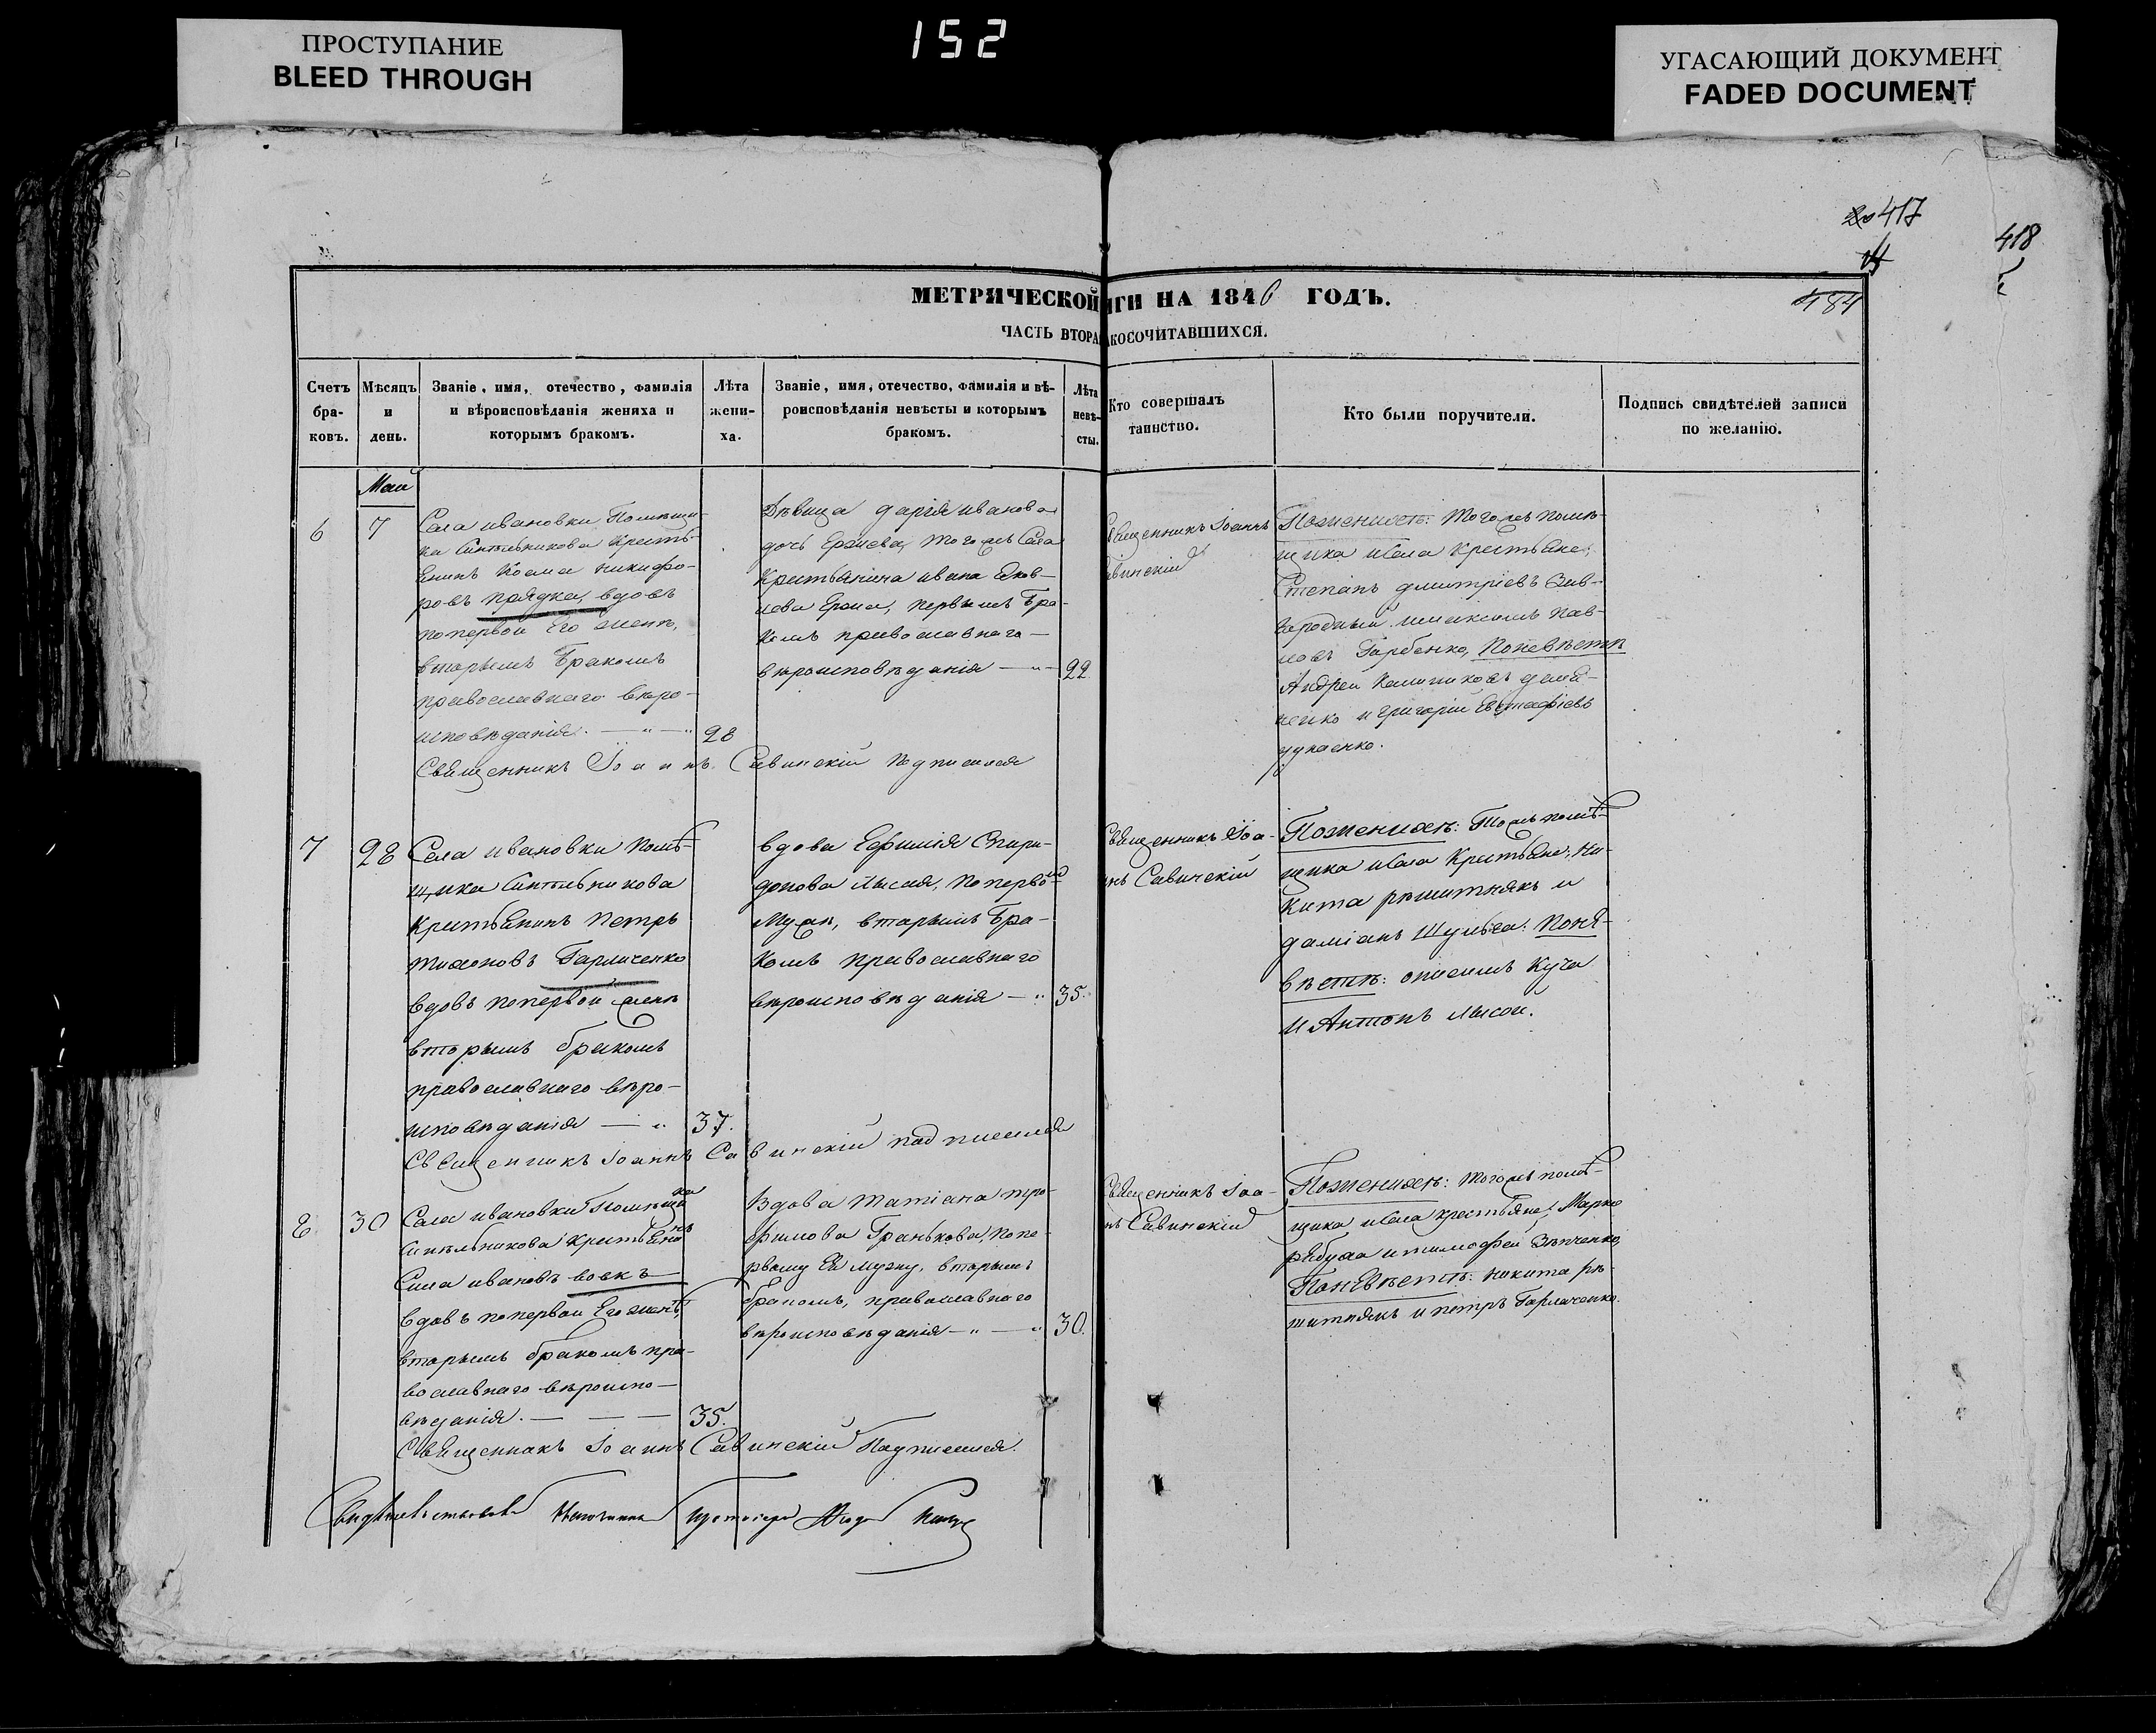 ПРОСТУПАНИЕ
BLEED THROUGH
152
УГАСАЮЩИЙ ДОКУМЕНТ
FADED DOCUMENT
417
418
184
МЕТРИЧЕСКОЙ ИГИ НА 1846 ГОДЪ.
ЧАСТЬ ВТОРА КОСОЧИТАВШИХСЯ.
Счетъ бра- ковъ.
Мѣсяцъ и день.
Званіе, имя, отечество, фамилія и вѣроисповѣданія жениха и которымъ бракомъ.
Лѣта жени- ха.
Званіе, имя, отечество, фамилія и вѣ- роисповѣданія невѣсты и которымъ бракомъ.
Лѣта невѣ- сты.
Кто совершалъ таинство.
Кто были поручители.
Подпись свидѣтелей записи по желанію.
Май
6
7
Села ивановки Помѣщи-
ка Синѣльникова Кресть-
Янинъ Косма никифо-
ровъ прядка, вдовъ
попервой Его женѣ,
вторымъ Бракомъ
православнаго вѣро-
исповѣданія. — " — " 28
Дѣвица дарія иванова
дочь Ержева, тогожъ Села
Крестьянина ивана Яков-
лева Ержа, первымъ Бра-
комъ православнаго —
вѣроисповѣданія — " — 22
Священникъ Іоаннъ
авинскій
Поженихѣ: тогожъ помѣ-
щика иСела Крестьяне;
Степанъ дмитріевъ
имаксимъ пав-
ловъ Гарбенко, Поневѣстѣ
Андрей
и григорій Евстафіевъ
Священникъ Іоаннъ Савинскій Подписался
7
28
Села ивановки помѣ-
щика Синѣльникова
Крестьянинъ Петръ
тихоновъ Гарличенко
вдовъ попервой женѣ
вторымъ бракомъ
православнаго вѣро-
исповѣданія — " 37.
вдова Евфимія Спири-
донова лысая, попервом
Мужѣ, вторымъ Бра-
комъ православнаго
вѣроисповѣданія — " 35.
Священникъ Іоа-
ннъ Савинскій
Поженихѣ: тогожъ помѣ-
щика иСела Крестьяне; Ни-
кита рѣшитнякъ и
даміанъ Шульга: Поне-
вѣстѣ: онисимъ Куча
и Антонъ лысой.
Священникъ Іоаннъ Савинскій подписался
8
30
Села ивановки Помѣщика
Синѣльникова Крестьянинъ
Сила ивановъ вовкъ —
вдовъ попервой Его женѣ,
вторымъ бракомъ пра-
вославнаго вѣроиспо-
вѣданія. — — — 35.
Вдова татіана тро-
фимова Гранькова, попе-
рвому Ея мужу, вторымъ
бракомъ, православнаго
вѣроисповѣданія — " — " 30.
Священникъ Іоа-
нъ Савинскій
Поженихѣ: тогожъ помѣ-
щика иСела крестьяне; Марко
рябуха итимофей Зѣнченко,
Поневѣстѣ: никита рѣ-
шитнякъ и петръ Гарличенко.
Священникъ Іоаннъ Савинскій Подписался.